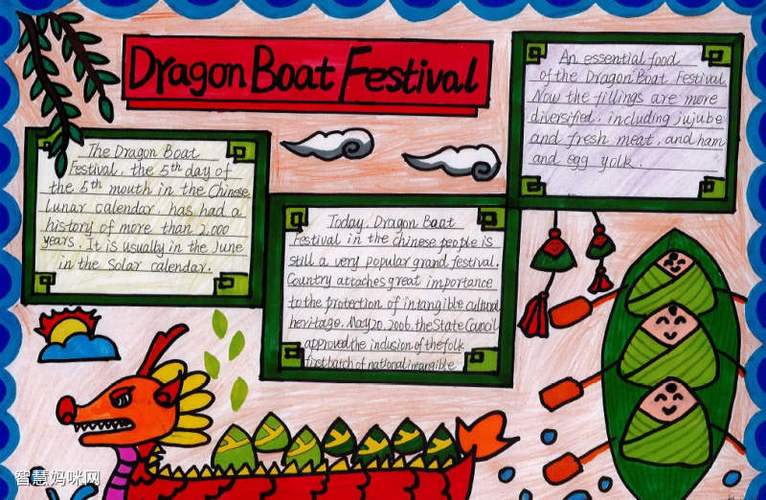 Dragon Boat Festival
The Dragon Boat
Festival, the 5th day of
the 5th mouth in the Chinese
Lunar calendar, has had a
history of more than 2,000
years. It is usually in the June
in the Solar calendar.
Today, Dragon Boat
Festival in the chinese people is
still a very popular grand festival.
Country attaches great importance
to the protection of intangible cultural
heritage. May 20, 2006, the State Council
approved the inclusion of the folk
first batch of national intangible
An essential food
of the Dragon Boat Festival.
Now the fillings are more
diversified, including jujube
and fresh meat, and ham
and egg yolk.
智慧妈咪网